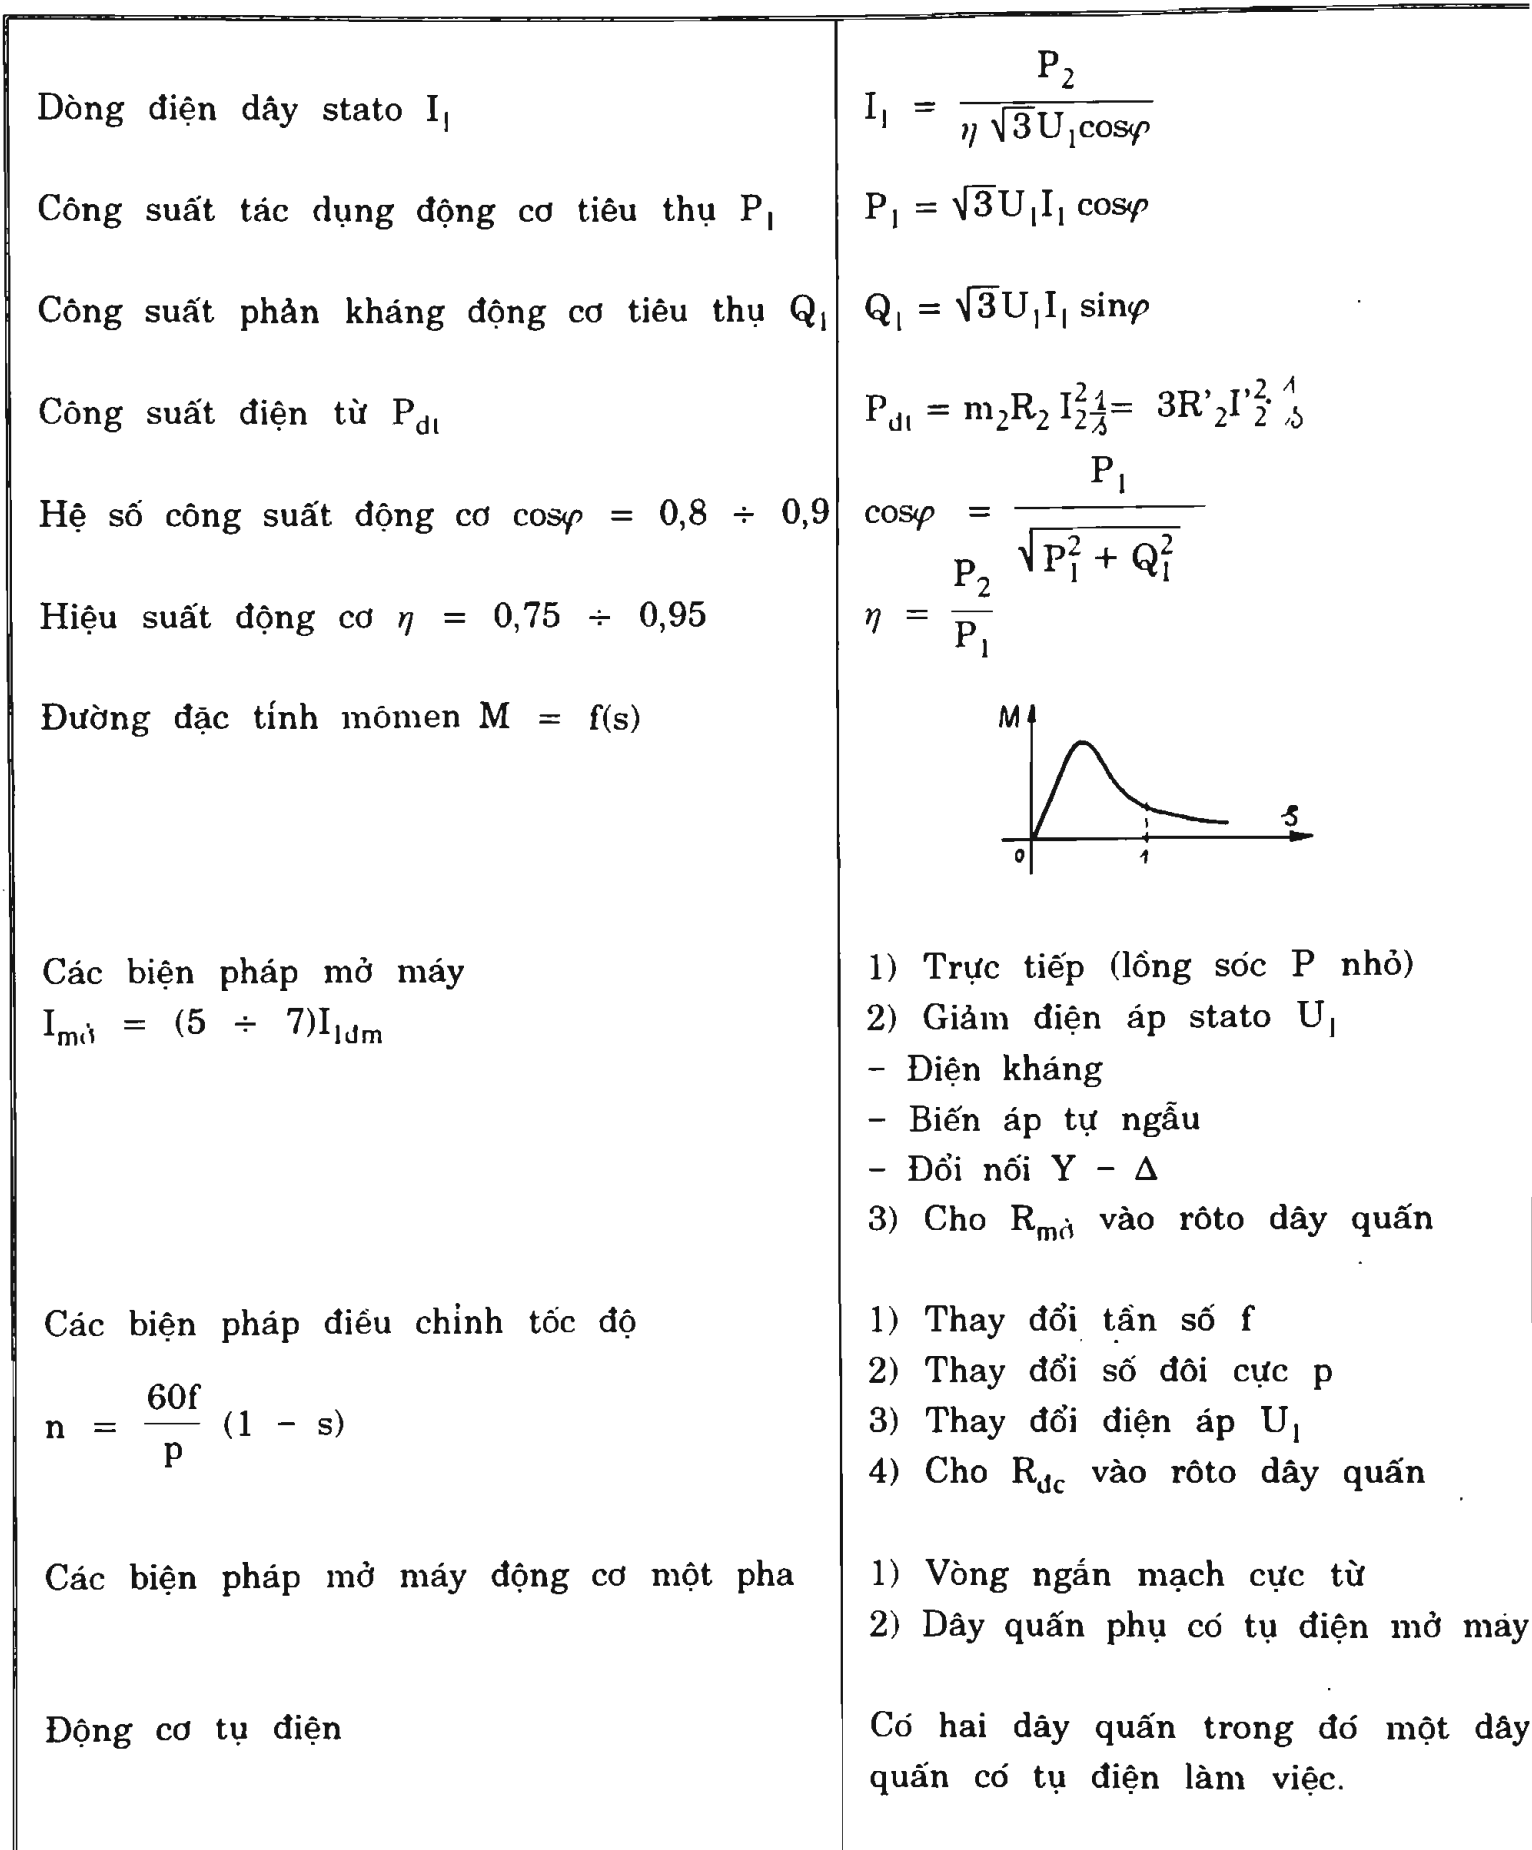 Dòng điện dây stato I₁
I₁ = P₂ / (η √3U₁cosφ)
Công suất tác dụng động cơ tiêu thụ P₁
P₁ = √3U₁I₁ cosφ
Công suất phản kháng động cơ tiêu thụ Q₁
Q₁ = √3U₁I₁ sinφ
Công suất điện từ Pđt
Pđt = m₂R₂ I₂² 1/s = 3R’₂I’₂² · 1/s
Hệ số công suất động cơ cosφ = 0,8 ÷ 0,9
cosφ = P₁ / √(P₁² + Q₁²)
Hiệu suất động cơ η = 0,75 ÷ 0,95
η = P₂ / P₁
Đường đặc tính mômen M = f(s)
M
s
0
1
Các biện pháp mở máy
Imở = (5 ÷ 7)I₁đm
1) Trực tiếp (lồng sóc P nhỏ)
2) Giảm điện áp stato U₁
– Điện kháng
– Biến áp tự ngẫu
– Đổi nối Y – Δ
3) Cho Rmở vào rôto dây quấn
Các biện pháp điều chỉnh tốc độ
n = 60f/p (1 – s)
1) Thay đổi tần số f
2) Thay đổi số đôi cực p
3) Thay đổi điện áp U₁
4) Cho Rđc vào rôto dây quấn
Các biện pháp mở máy động cơ một pha
1) Vòng ngắn mạch cực từ
2) Dây quấn phụ có tụ điện mở máy
Động cơ tụ điện
Có hai dây quấn trong đó một dây
quấn có tụ điện làm việc.